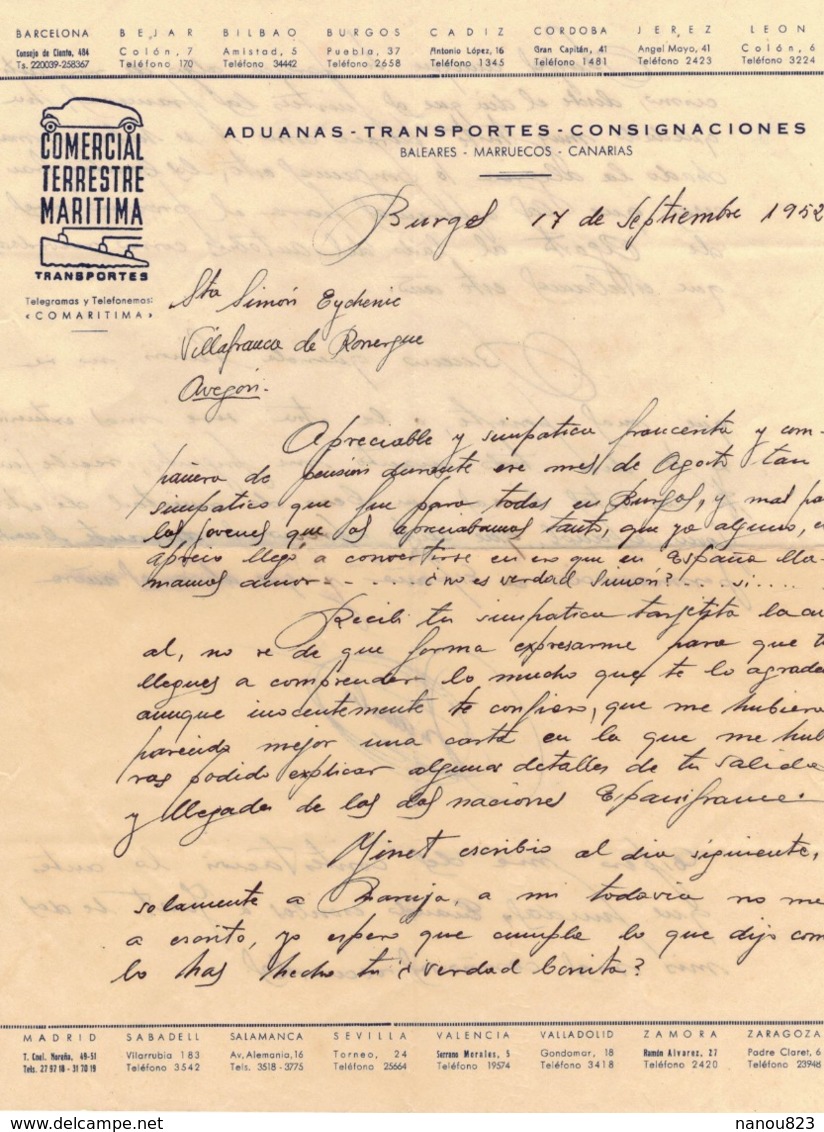 BARCELONA BEJAR BILBAO BURGOS CADIZ CORDOBA JEREZ LEON
Consejo de Ciento, 484 Colón, 7 Amistad, 5 Puebla, 37 Antonio López, 16 Gran Capitán, 41 Angel Mayo, 41 Colón, 6
Ts. 220039-258367 Teléfono 170 Teléfono 34442 Teléfono 2658 Teléfono 1345 Teléfono 1481 Teléfono 2423 Teléfono 3224
COMERCIAL
TERRESTRE
MARITIMA
TRANSPORTES
Telegramas y Telefonemas:
«COMARITIMA»
ADUANAS - TRANSPORTES - CONSIGNACIONES
BALEARES - MARRUECOS - CANARIAS
Burgos 17 de Septiembre 1952
Sta Simón Eychenic
Villafranca de Ronergue
Avegón.
Apreciable y simpatica francesita y com-
pañera de pensión durante ese mes de Agosto tan
simpatico que fue para todas en Burgos, y mas pa
los jovenes que os apreciabamos tanto, que ya alguno,
aprecio llegó a convertirse en eso que en España lla-
mamos amor - - . . . . . ¿no es verdad Simón? . . . . si . . . .
Recibi tu simpatica tarjetita la cu
al, no se de que forma expresarme para que t
llegues a comprender lo mucho que te lo agrade
aunque inocentemente te confieso, que me hubiera
parecido mejor una carta en la que me hub
ras podido explicar algunos detalles de tu salida
y llegada de las dos naciones Españifrance.
Yinet escribio al dia siguiente,
solamente a, a mi todavia no me
a escrito, yo espero que cumpla lo que dijo com
lo has hecho tu ¿verdad bonita?
MADRID SABADELL SALAMANCA SEVILLA VALENCIA VALLADOLID ZAMORA ZARAGOZA
T. Cnel. Noreña, 49-51 Vilarrubia 183 Av, Alemania, 16 Torneo, 24 Serrano Morales, 5 Gondomar, 18 Ramón Alvarez, 27 Padre Claret, 6
Tels. 27 97 18 - 31 70 19 Teléfono 3542 Tels. 3518 - 3775 Teléfono 25664 Teléfono 19574 Teléfono 3418 Teléfono 2420 Teléfono 23948
nanou823